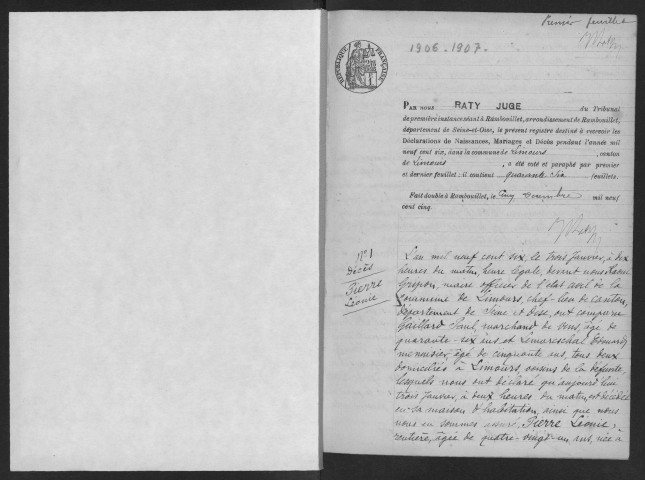 Premier feuillet
1906-1907.
RÉPUBLIQUE FRANÇAISE
PAR NOUS RATY JUGE du Tribunal
de première instance séant à Rambouillet, arrondissement de Rambouillet,
département de Seine-et-Oise, le présent registre destiné à recevoir les
Déclarations de Naissances, Mariages et Décès pendant l'année mil
neuf cent six, dans la commune de Limours, canton
de Limours, a été coté et paraphé par premier
et dernier feuillet: il contient quarante six feuillets.
Fait double à Rambouillet, le cinq décembre mil neuf
cent cinq.
N° 1
Décès
Pierre
Léonie
L'an mil neuf cent six, le trois Janvier, à dix
heures du matin, heure légale, devant nous
maire officier de l'état civil de la
commune de Limours, chef-lieu de canton,
département de Seine et Oise, ont comparu
Gaillard Paul, marchand de vins, âgé de
quarante-six ans et Lemareschal Edouard,
menuisier, âgé de cinquante ans, tous deux
domiciliés à Limours, voisins de la défunte,
lesquels nous ont déclaré qu'aujourd'hui
trois Janvier, à deux heures du matin, est décédée
en sa maison d'habitation, ainsi que nous
nous en sommes assuré, Pierre Léonie,
rentière, âgée de quatre-vingt-un ans, née à